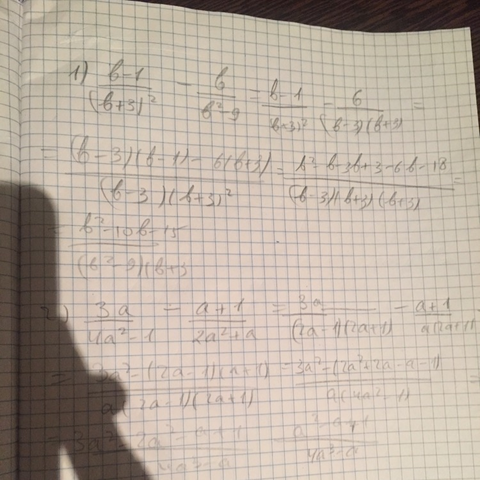 1) (b-1)/(b+3)² - b/(b²-9) = (b-1)/(b+3)² - 6/((b-3)(b+3)) =
= ((b-3)(b-1)-6(b+3))/((b-3)(b+3)²) = (b²-b-3b+3-6b-18)/((b-3)(b+3)(b+3)) =
= (b²-10b-15)/((b²-9)(b+3
2) 3a/(4a²-1) - (a+1)/(2a²+a) = 3a/((2a-1)(2a+1)) - (a+1)/(a(2a+1)
= (3a²-(2a-1)(a+1))/(a(2a-1)(2a+1)) = (3a²-(2a²+2a-a-1))/(a(4a²-1)) =
= (3a²-2a²-a+1)/(4a³-a) = (a²-a+1)/(4a³-a)